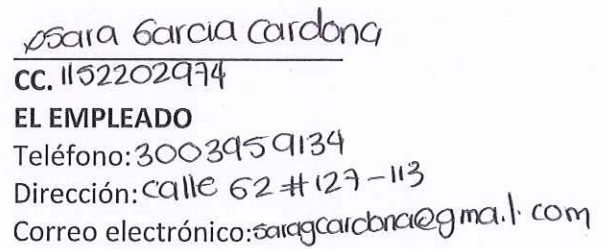 Sara Garcia Cardona
CC. 1152202974
EL EMPLEADO
Teléfono: 3003959134
Dirección: calle 62 # 127-113
Correo electrónico: saragcardona@gmail.com